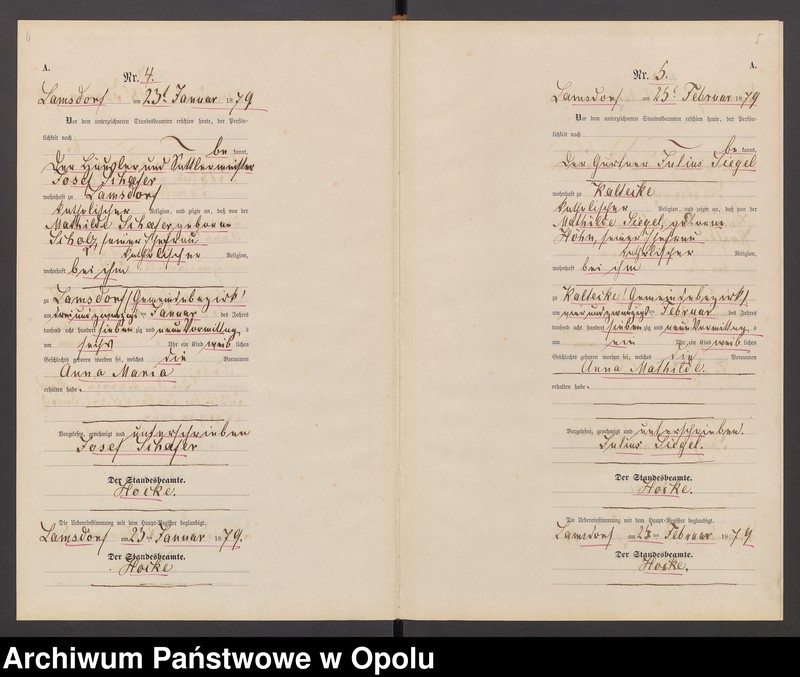 A.
Nr. 4.
Lamsdorf am 23t Januar 1879
Vor dem unterzeichneten Standesbeamten erschien heute, der Persön-
lichkeit nach
be kannt,
Der Häusler und Sattlermeister
Josef Schäfer
wohnhaft zu Lamsdorf
katholischer Religion, und zeigte an, daß von der
Mathilde Schäfer geborne
Scholz, seiner Ehefrau
katholischer Religion,
wohnhaft bei ihm
zu Lamsdorf (Gemeindebezirk)
am drei und zwanzigsten Januar des Jahres
tausend acht hundert siebenzig und neun Vormittags
um sechs Uhr ein Kind weiblichen
Geschlechts geboren worden sei, welches die Vornamen
Anna Maria
erhalten habe.
Vorgelesen, genehmigt und unterschrieben
Josef Schäfer
Der Standesbeamte.
Hocke.
Die Uebereinstimmung mit dem Haupt-Register beglaubigt.
Lamsdorf am 23ten Januar 1879.
Der Standesbeamte.
Hocke
5
A.
Nr. 5.
Lamsdorf am 25t Februar 1879
Vor dem unterzeichneten Standesbeamten erschien heute, der Persön-
lichkeit nach
be kannt,
Der Gärtner Julius Siegel
wohnhaft zu Kaltecke
katholischer Religion, und zeigte an, daß von der
Mathilde Siegel, geborne
Höhn, seiner Ehefrau
katholischer Religion,
wohnhaft bei ihm
zu Kaltecke (Gemeindebezirk)
am vier und zwanzigsten Februar des Jahres
tausend acht hundert siebenzig und neun Vormittags
um ein Uhr ein Kind weiblichen
Geschlechts geboren worden sei, welches die Vornamen
Anna Mathilde.
erhalten habe.
Vorgelesen, genehmigt und unterschrieben.
Julius Siegel.
Der Standesbeamte.
Hocke.
Die Uebereinstimmung mit dem Haupt-Register beglaubigt.
Lamsdorf am 25ten Februar 1879
Der Standesbeamte.
Hocke.
Archiwum Państwowe w Opolu